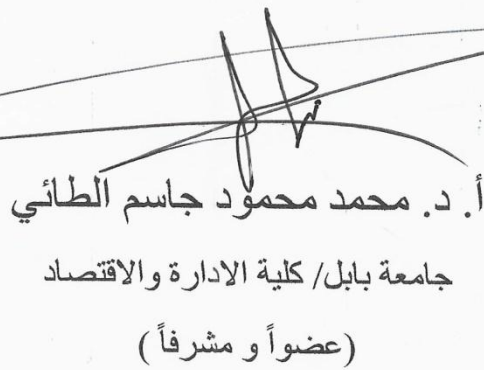 أ. د. محمد محمود جاسم الطائي
جامعة بابل/ كلية الادارة والاقتصاد
(عضواً و مشرفاً )